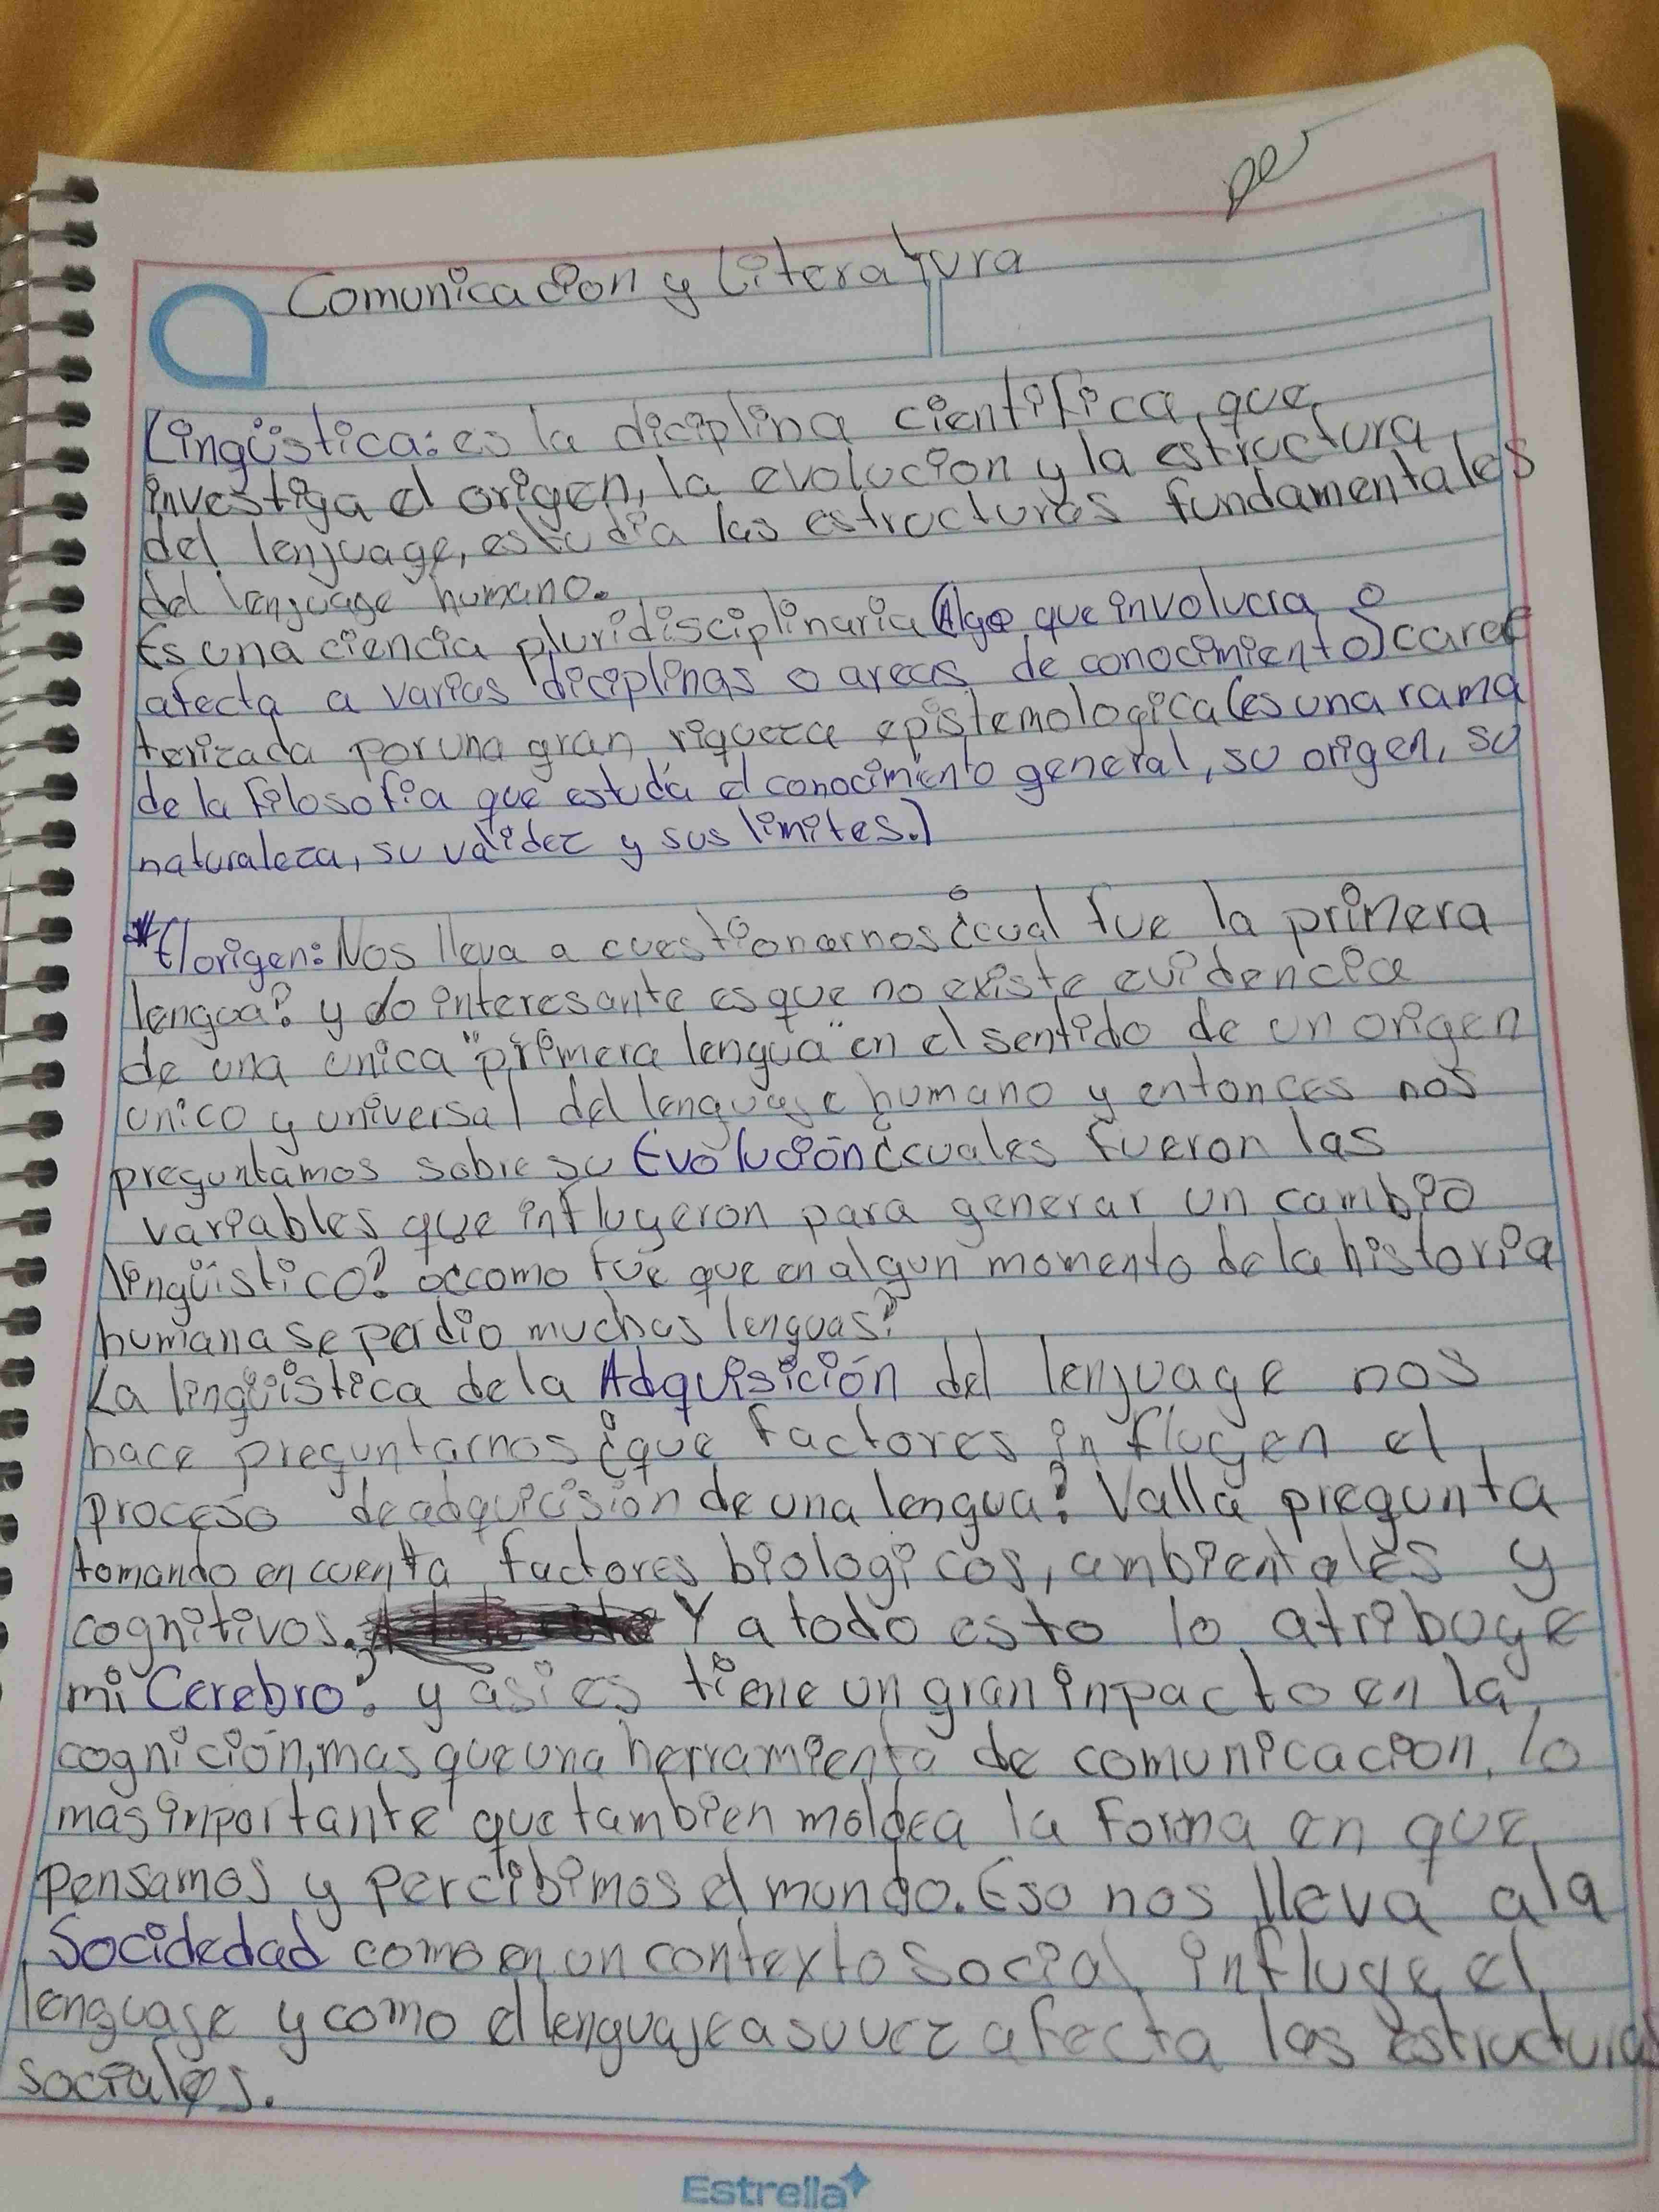 per
Comunicacion y Literatura
Lingüistica: es la diciplina cientifica, que
investiga el origen, la evolucion y la estructura
del lenjuage, estudia las estructuras fundamentales
del lenjuage humano.
Es una ciencia pluridisciplinaria (Algo que involucra o
afecta a varias diciplinas o areas de conocimiento) carac
terizada por una gran riqueza epistemologica (es una rama
de la filosofia que estuda el conocimiento general, su origen, su
naturaleza, su validez y sus limites.)
*El origen: Nos lleva a cuestionarnos ¿cual fue la primera
lengua? y lo interesante es que no existe evidencia
de una unica "primera lengua" en el sentido de un origen
unico y universal del lenguaje humano y entonces nos
preguntamos sobre su Evolución ¿cuales fueron las
variables que influyeron para generar un cambio
lingüistico? o ¿como fue que en algun momento de la historia
humana se perdio muchas lenguas?
La lingüistica de la Adquisición del lenjuage nos
hace preguntarnos ¿que factores influyen el
proceso de adquicisión de una lengua? Valla pregunta
tomando en cuenta factores biologicos, ambientales y
cognitivos. Y a todo esto lo atribuye
mi Cerebro? y asi es tiene un gran inpacto en la
cognición, mas que una herramienta de comunicacion, lo
mas inportante que tambien moldea la forma en que
pensamos y percibimos el mundo. Eso nos lleva a la
Socidedad como en un contexto social influye el
lenguaje y como el lenguaje a su vez afecta las estructuras
sociales.
Estrella